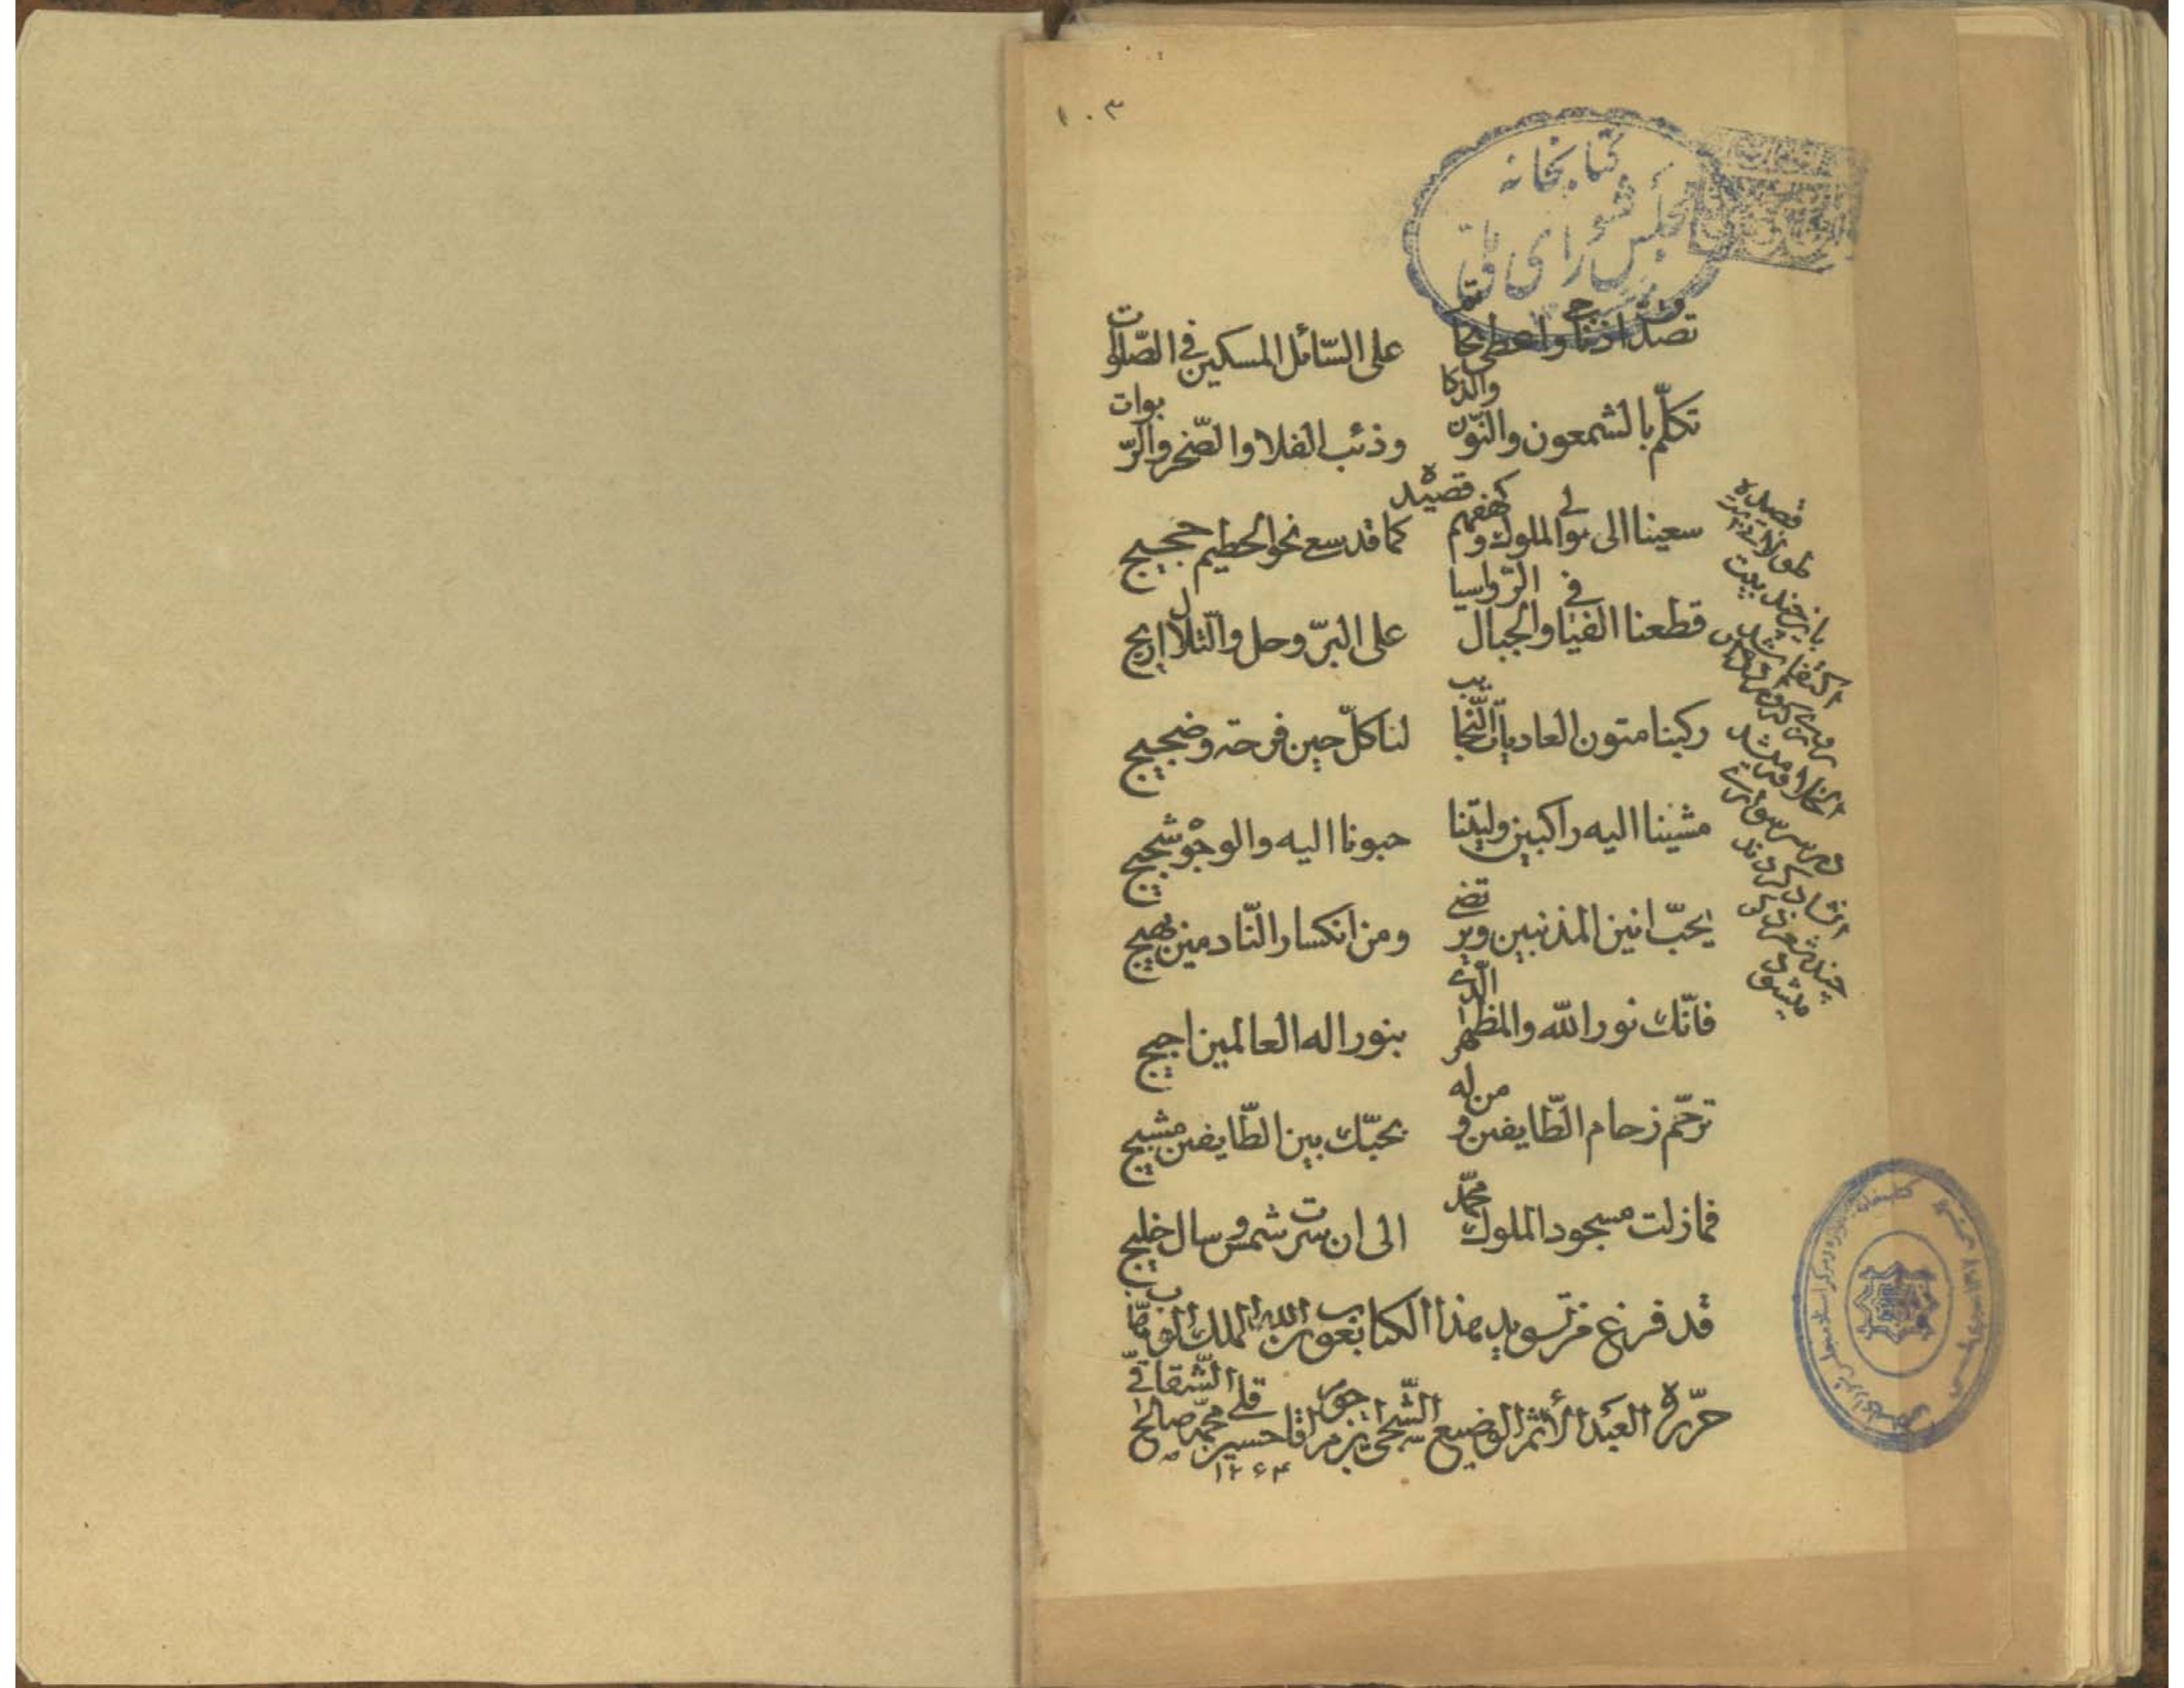 ١٠٣
کتابخانه
مجلس شورای ملی
تصدّق اذ ناجى واعطى بخاتم على السّائل المسكين في الصّلوات
تكلّم بالشمعون والنّون والذكا وذئب الفلا والصّخر والرّبوات
قصيده
سعينا الى مولى الملوك وكهفهم كما قد سعى نحو الحطيم حجيج
قطعنا الفيافي والجبال الرّواسيا على البرّ وحل والتّلال اريج
ركبنا متون العاديات النّجايب لنا كلّ حين فرحة وضجيج
مشينا اليه راكبين وليتنا حبونا اليه والوجوه شجيج
يحبّ انين المذنبين ويرتضى ومن انكسار النّادمين بهيج
فانّك نور الله والمظهر الّذى بنور اله العالمين اجيج
ترحّم زحام الطّايفين ومن له بحبّك بين الطّايفين مشيج
فما زلت مسجود الملوك محمّد الى ان سرت شمس وسال خليج
قد فرغ من تسويد هذا الكتاب بعون الله الملك الوهّاب
حرّره العبد الأثم الوضيع الشّجى بن مرحوم اقا حسين قلى محمّد صالح الشّقاقى
١٢٦٤
قصيده
طولانى
باين چند بيت
اكتفا شد
در سر سوارى
انشاد كردند
چند شعر
ميشود